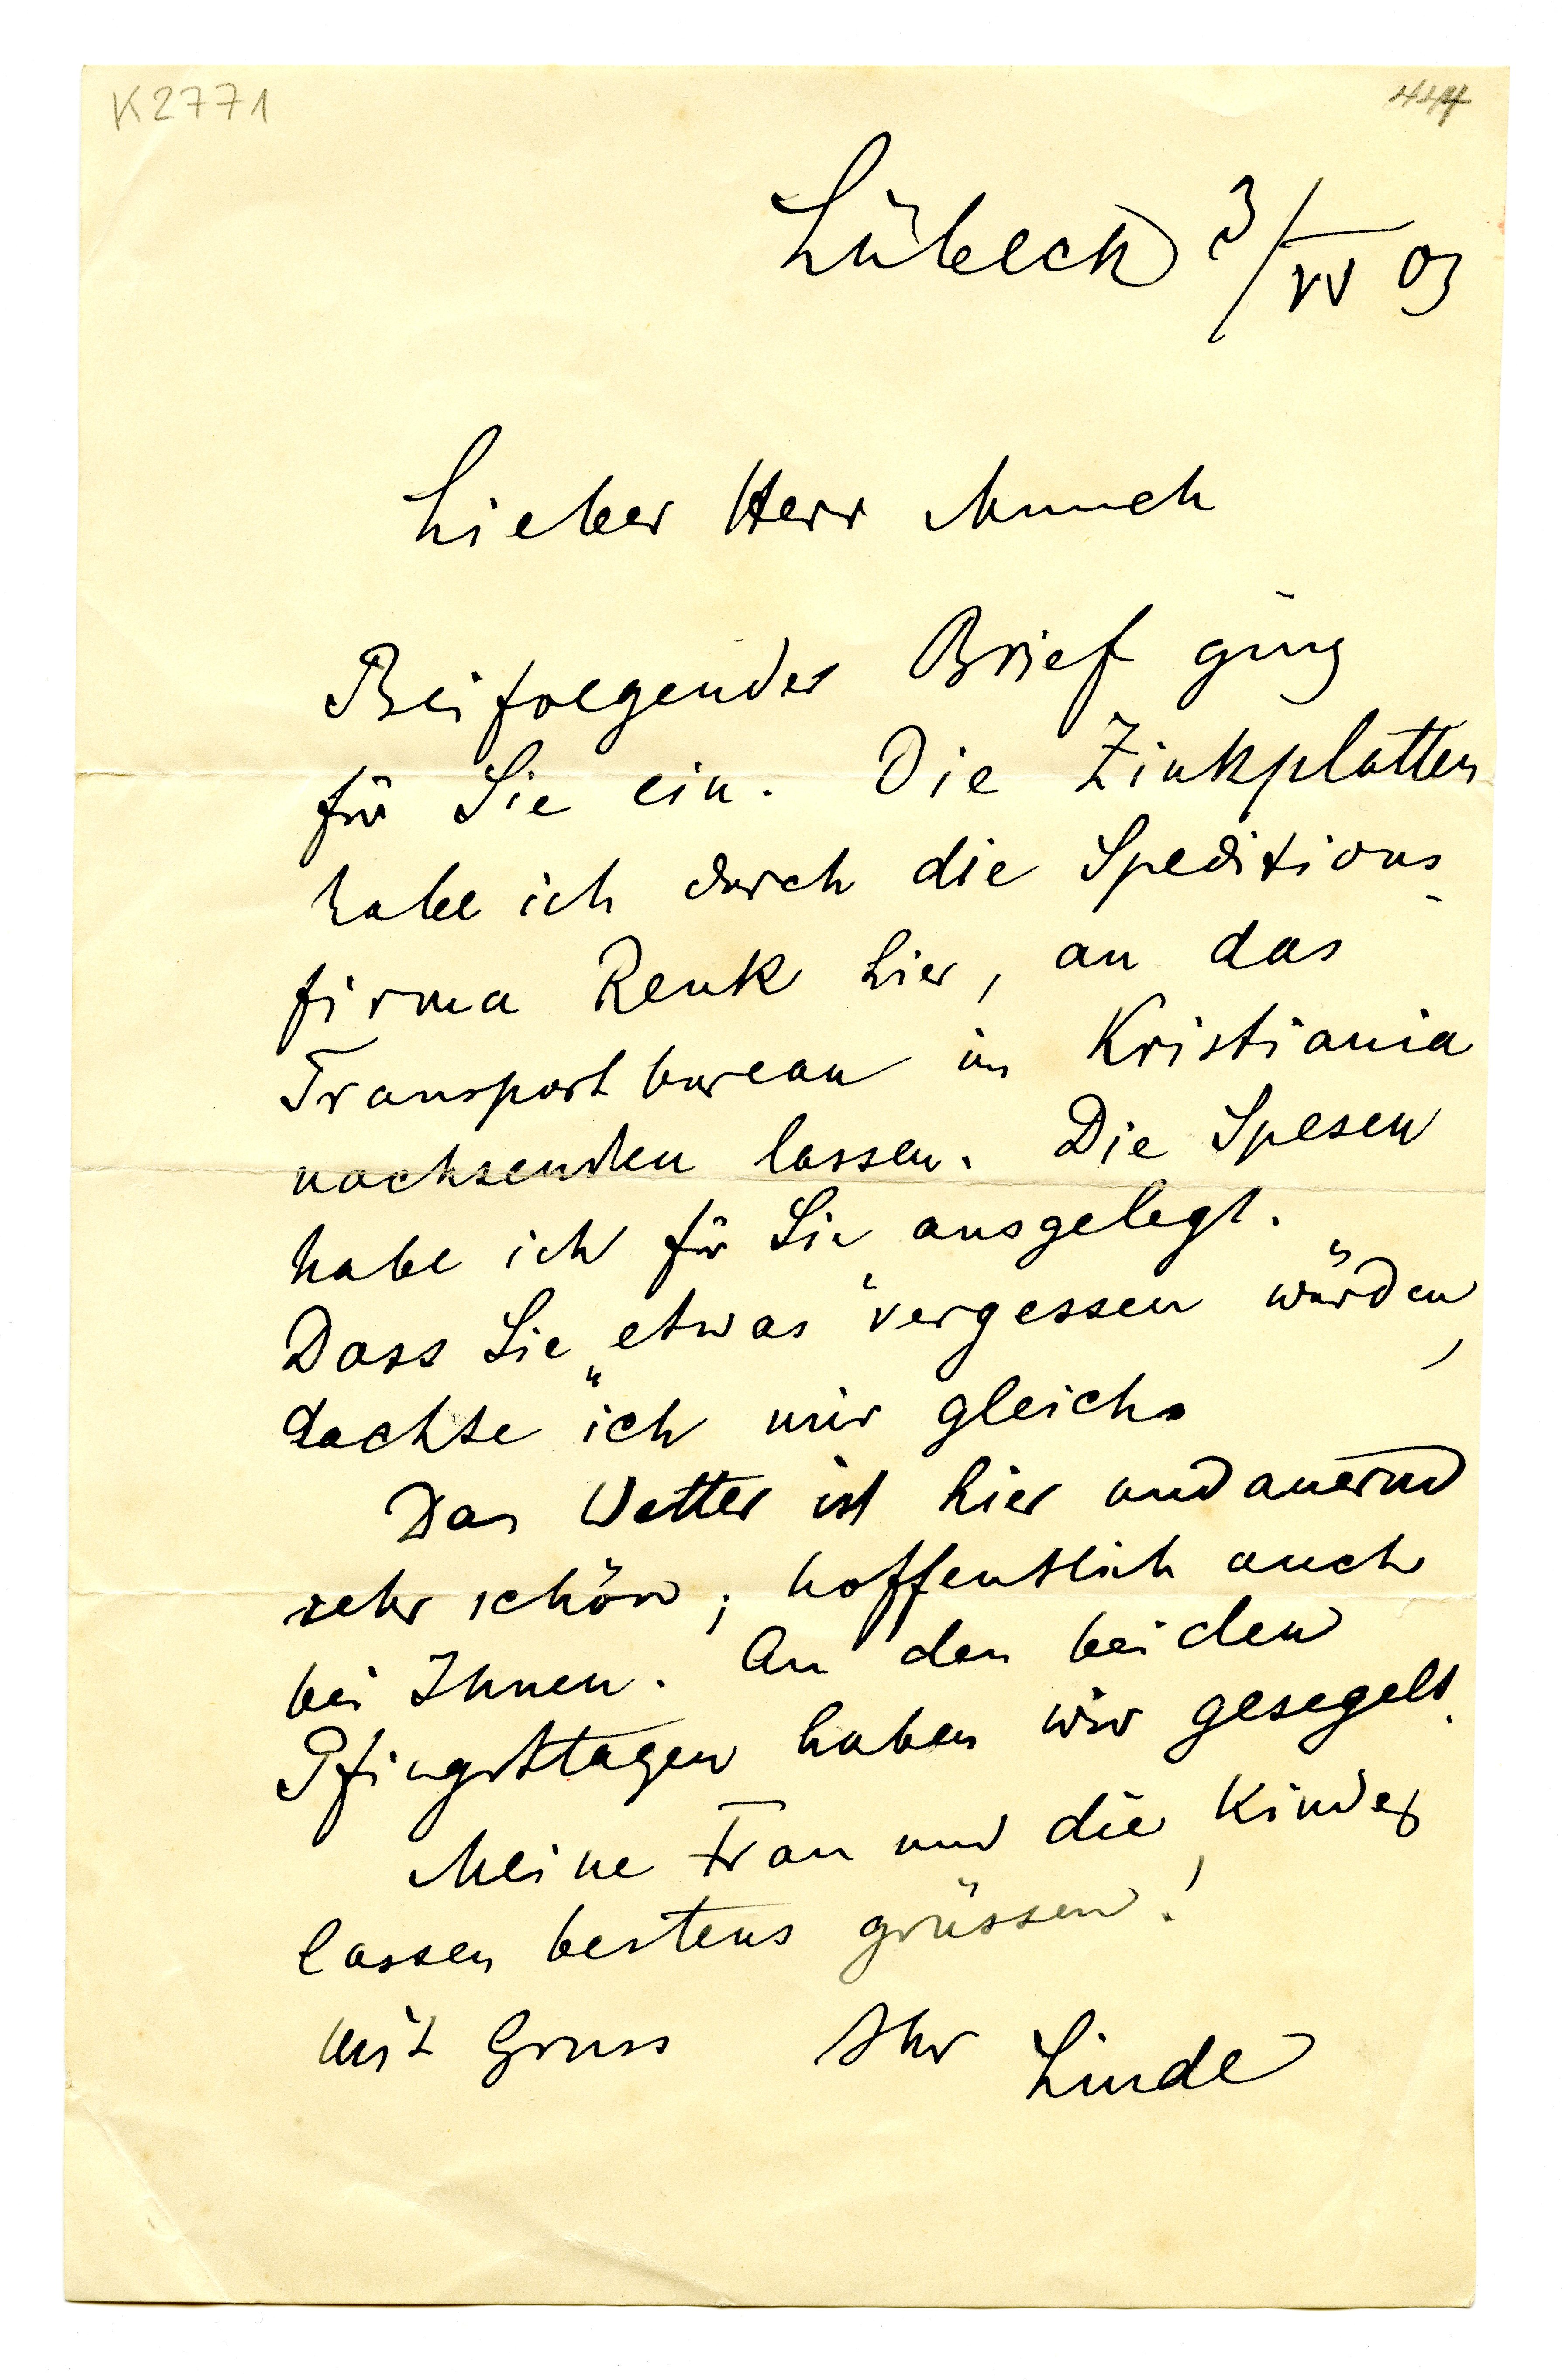 K2771
Lübeck 3/VI 03
Lieber Herr Munch
Beifolgender Brief ging
für Sie ein. Die Zinkplatten
habe ich durch die Speditions-
firma Renk hier, an das
Transportbureau in Kristiania
nachsenden lassen. Die Spesen
habe ich für Sie ausgelegt.
Dass Sie „etwas“ vergessen würden,
dachte ich mir gleich.
Das Wetter ist hier andauernd
sehr schön; hoffentlich auch
bei Ihnen. An den beiden
Pfingsttagen haben wir gesegelt.
Meine Frau und die Kinder
lassen bestens grüssen!
Mit Gruss Ihr Linde